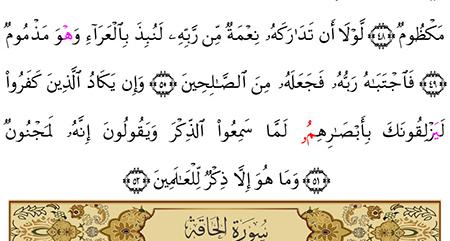 مَكۡظُومٞ ٤٨ لَّوۡلَآ أَن تَدَٰرَكَهُۥ نِعۡمَةٞ مِّن رَّبِّهِۦ لَنُبِذَ بِٱلۡعَرَآءِ وَهۡوَ مَذۡمُومٞ
٤٩ فَٱجۡتَبَٰهُ رَبُّهُۥ فَجَعَلَهُۥ مِنَ ٱلصَّٰلِحِينَ ٥٠ وَإِن يَكَادُ ٱلَّذِينَ كَفَرُواْ
لَيَزۡلِقُونَكَ بِأَبۡصَٰرِهِمُۥ لَمَّا سَمِعُواْ ٱلذِّكۡرَ وَيَقُولُونَ إِنَّهُۥ لَمَجۡنُونٞ
٥١ وَمَا هُوَ إِلَّا ذِكۡرٞ لِّلۡعَٰلَمِينَ ٥٢
سُورَةُ الحَاقَّةِ